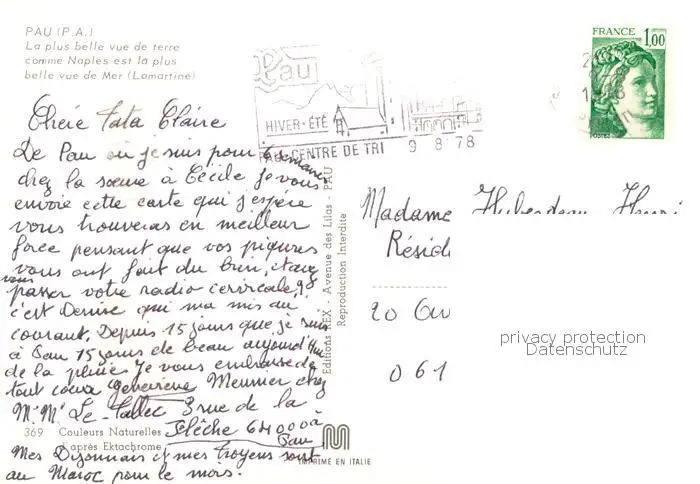 PAU (P.A.)
La plus belle vue de terre
comme Naples est la plus
belle vue de Mer (Lamartine)
Pau
HIVER-ÉTÉ
PAU CENTRE DE TRI
9 8 78
FRANCE 1,00
POSTES
Chère Tata Claire
De Pau où je suis pour 6 semaines
chez la sœur à Cécile Je vous
envoie cette carte qui j'espère
vous trouveras en meilleur
force pensant que vos piqures
vous ont fait du bien, et avez
vous passer votre radio cervicale,
c'est Denise qui ma mis au
courant. Depuis 15 jours que je suis
à Pau 15 jours de beau aujourd'hui
de la pluie. Je vous embrasse de
tout coeur Geneviève Meunier chez
Mr Me Le-Tallec 3 rue de la
Flèche 64000 à
Pau
Mes Dijonnais et mes Troyens sont
au Maroc pour le mois.
369 Couleurs Naturelles
d'après Ektachrome
IMPRIMÉ EN ITALIE
Editions REX - Avenue des Lilas - PAU
Reproduction Interdite
Madame Henri
Résid
20 Gu
061
privacy protection
Datenschutz